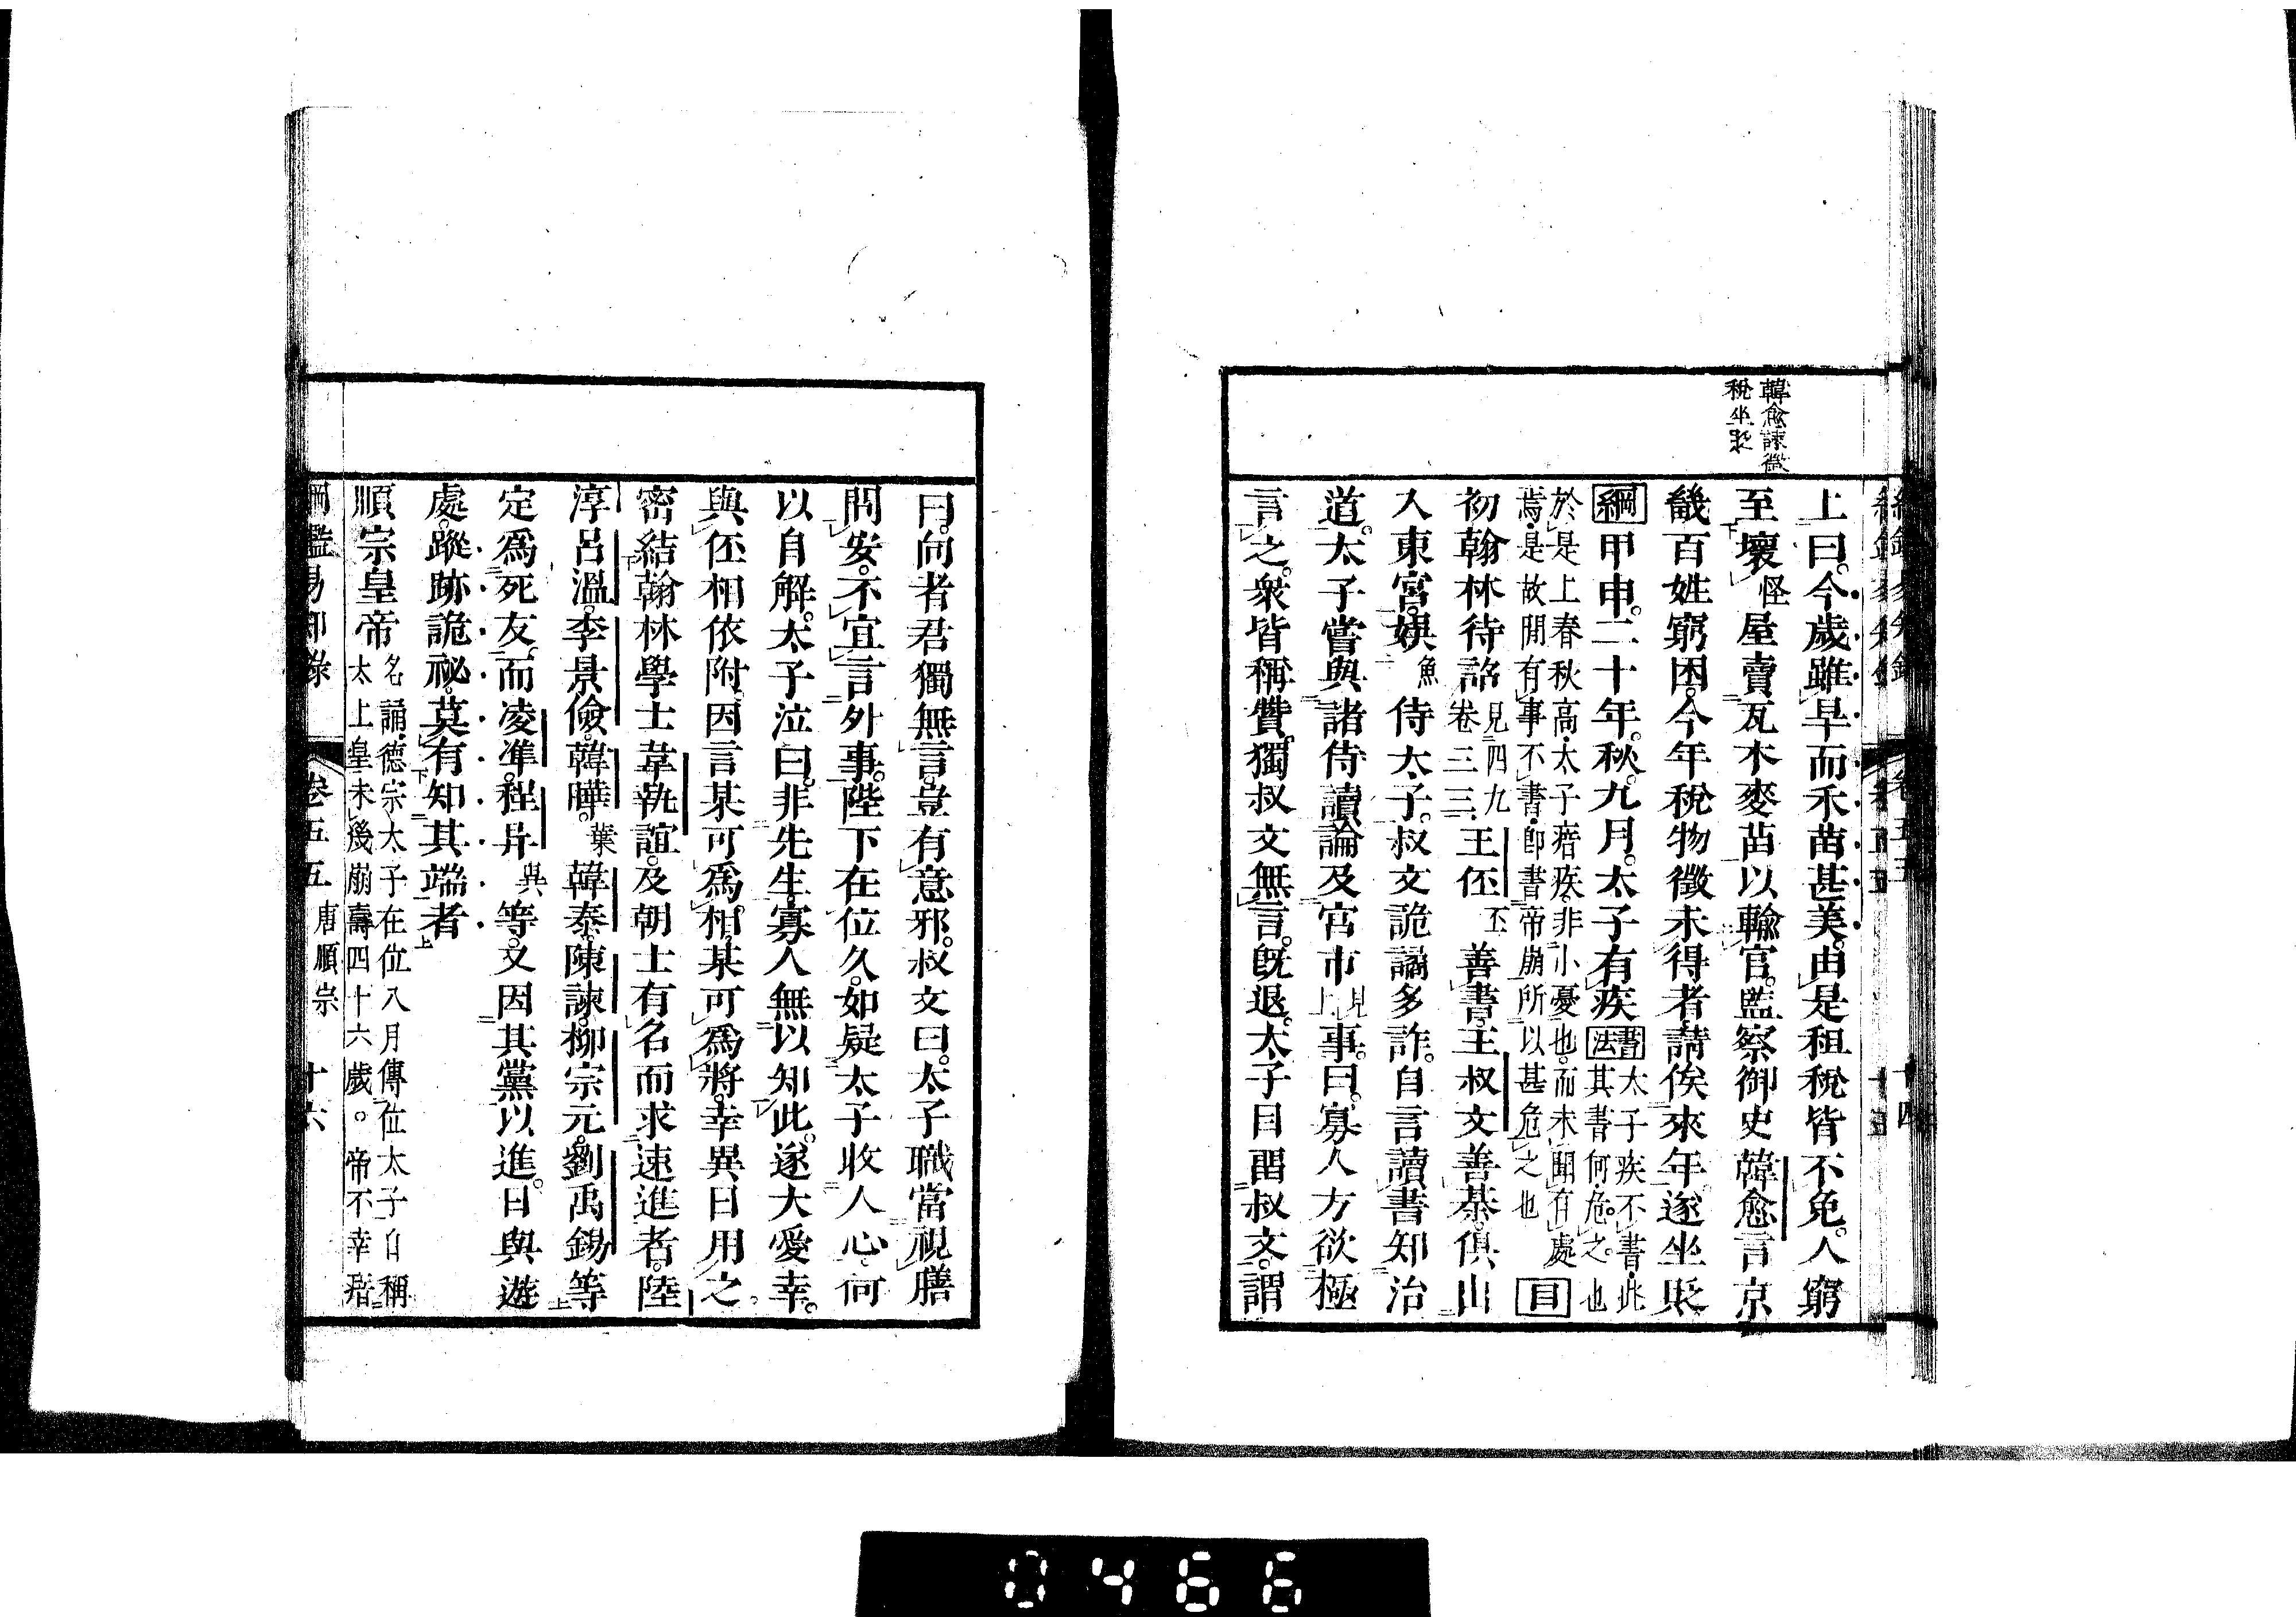 韓愈諫徵
稅坐貶
上曰。今歲雖旱而禾苗甚美。由是租稅皆不免。人窮
至壞怪屋賣瓦木麥苗以輸官。監察御史韓愈言京
畿百姓窮困。今年稅物徵未得者。請俟來年遂坐貶
綱甲申。二十年。秋。九月。太子有疾書法太子疾不書。此其書何。危之。也
於是上春秋高。太子瘖疾。非小憂也。而未聞有處
焉。是故閒有事不書。卽書帝崩所以甚危之也目
初翰林待詔見四九卷三三王伾丕善書。王叔文善棊。俱出
入東宮。娛魚侍太子。叔文詭譎多詐。自言讀書知治
道。太子嘗與諸侍讀論及宮市見上事。曰。寡人方欲極
言之。衆皆稱贊。獨叔文無言。旣退。太子目留叔文。謂
曰。向者君獨無言。豈有意邪。叔文曰。太子職當視膳
問安。不宜言外事。陛下在位久。如疑太子收人心。何
以自解。太子泣曰。非先生。寡人無以知此。遂大愛幸。
與伾相依附因言某可爲相。某可爲將。幸異日用之
密結翰林學士韋執誼。及朝士有名而求速進者。陸
淳呂溫。李景儉。韓曄。葉韓泰。陳諫。柳宗元。劉禹錫等
定爲死友。而凌準。程异與等。又因其黨以進。日與遊
處。蹤跡詭祕。莫有知其端者
順宗皇帝名誦。德宗太子在位八月傳位太子自稱太上皇未幾崩壽四十六歲。帝不幸瘖
綱鑑易知錄 卷五五 唐順宗 十六
0466